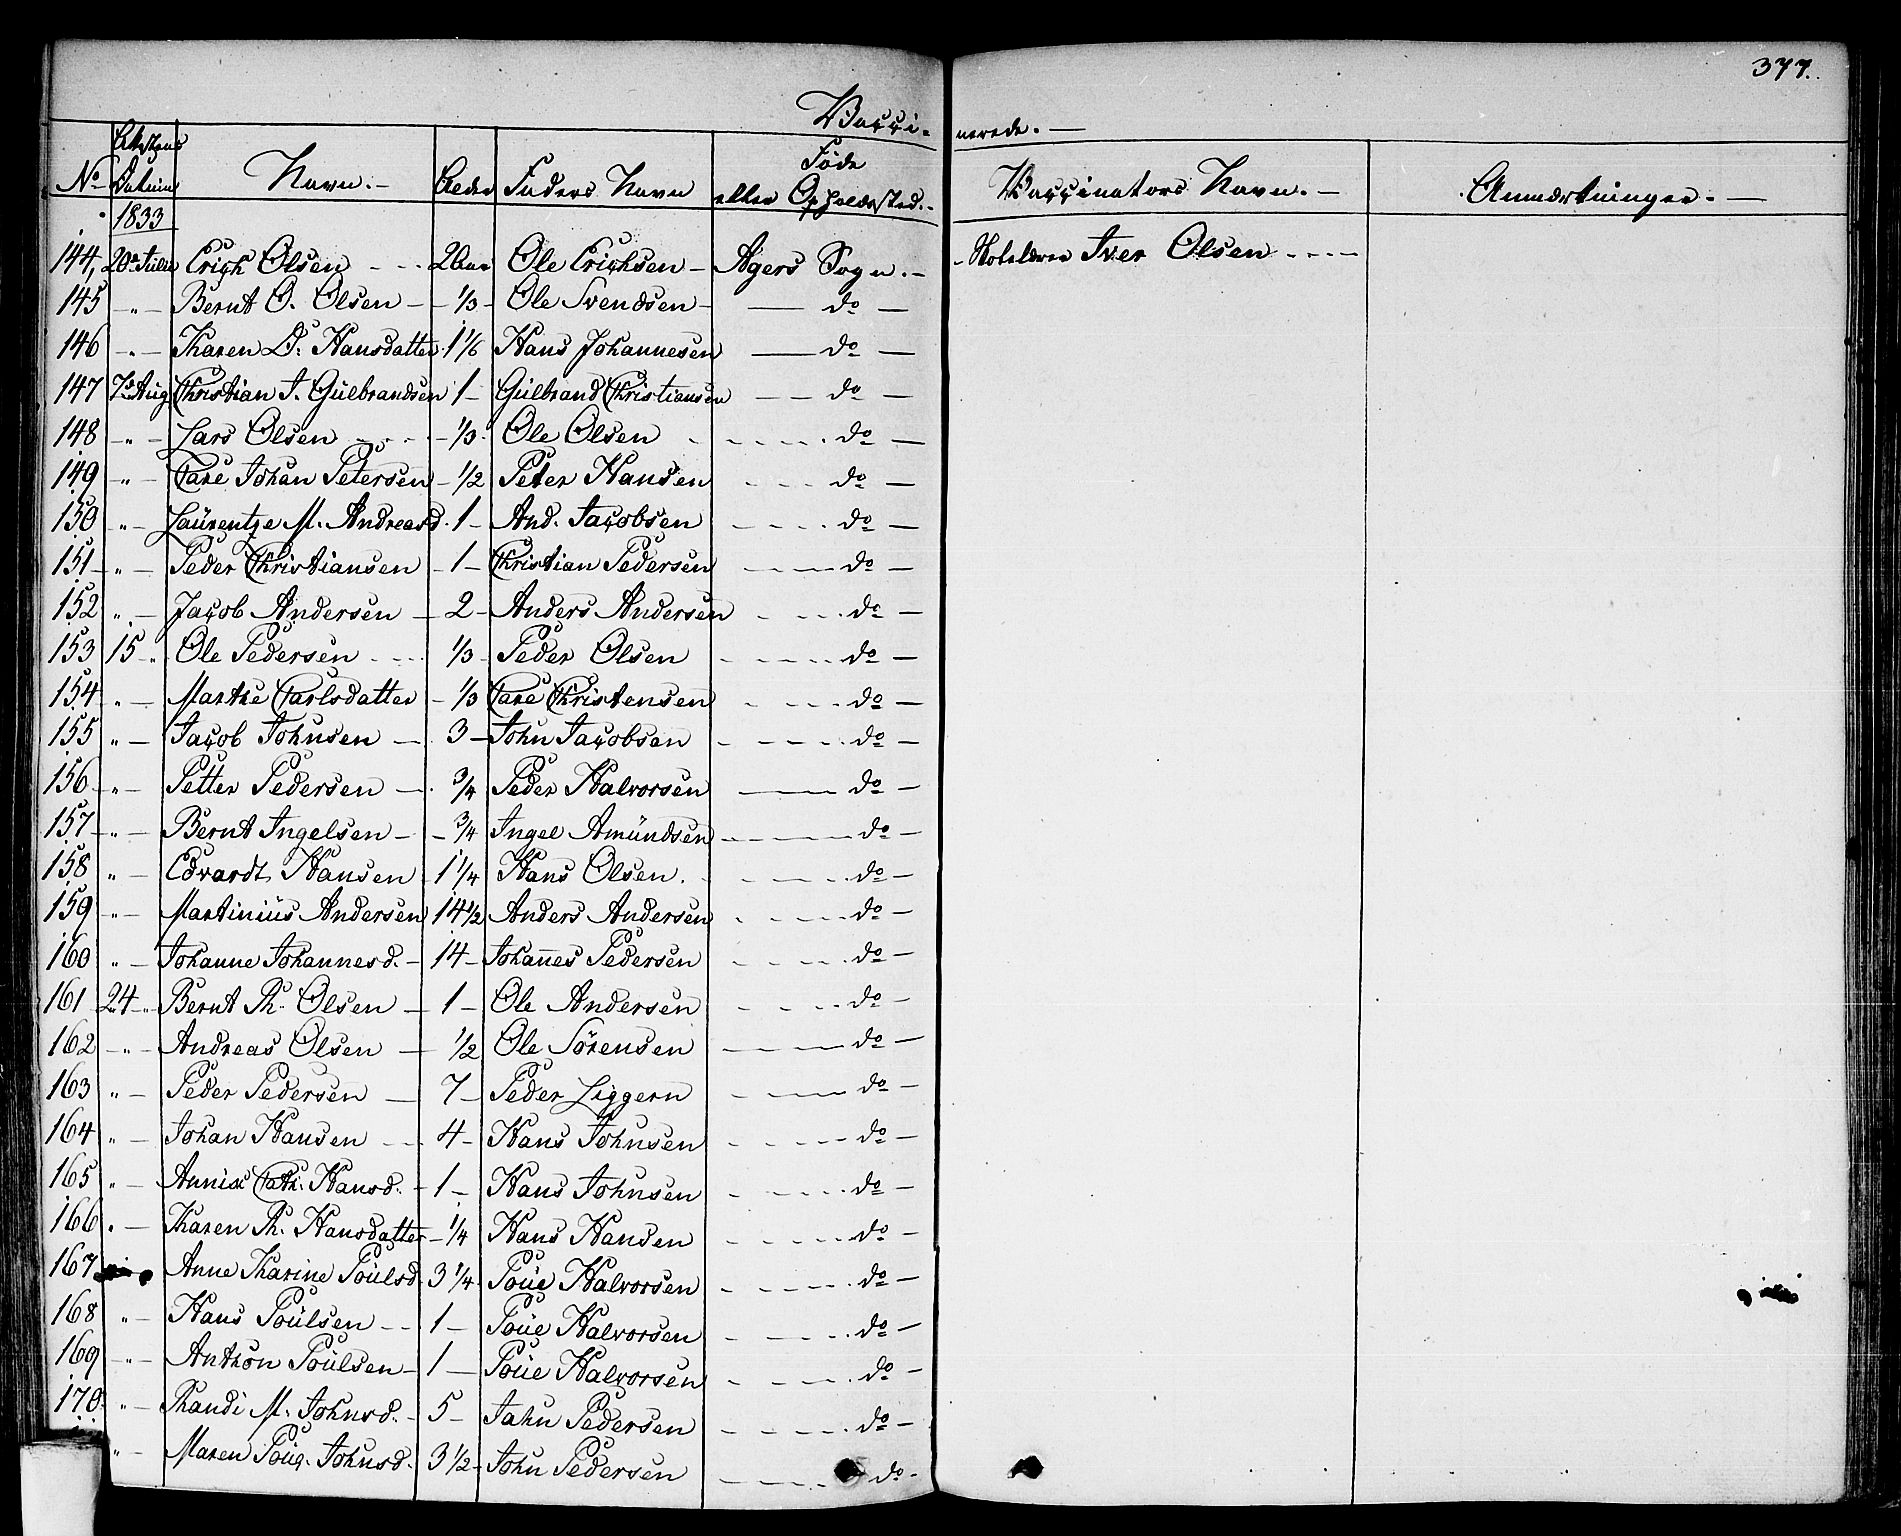 377.
Vacci- nerede. -
No Attestens Datum Navn. - Alder Faders Navn Føde eller Opholdssted. - Vaccinators Navn. - Anmærkninger. -
1833
144, 20de Julii Erich Olsen - - - 2 Aar Ole Erichsen - Agers Sogn. - - Skolelærer Iver Olsen - - - -
145 - " - Bernt O. Olsen - - 1/3 - Ole Svendsen - - do -
146 - " - Karen D. Hansdatter 1 1/6 Hans Johannesen - do -
147 7de Aug Christian J. Gulbrandsen 1 - Gulbrand Christiansen - - do -
148 - " - Lars Olsen - - - - 1/3 Ole Olsen - - - - do -
149 - " - Carl Johan Petersen - 1/2 Peter Hansen - - - do -
150 " - Laurentze M. Andreasd. 1 - And. Jacobsen - - - - do -
151 - " - Peder Christiansen - 1 - Christian Pedersen - - - do -
152 " - Jacob Andersen - 2 - Anders Andersen - - - do -
153 15 - " Ole Pedersen - - - 1/3 - Peder Olsen - - - - do -
154 - " - Marthe Carlsdatter - 1/3 Carl Christensen - - - - do -
155 " - Jacob Johnsen - 3 - John Jacobsen - - - - do -
156 - " - Petter Pedersen - 3/4 Peder Halvorsen - do -
157 - " - Bernt Ingelsen - - 3/4 Ingel Amundsen - - - do -
158 " - Edvardt Hansen 1 1/4 Hans Olsen. - - - - do -
159 " - Martinius Andersen 14 1/2 Anders Andersen - - - - do -
160 " - Johanne Johannesd. - 14 - Johannes Pedersen - - - - do -
161 24 " Bernt Th. Olsen - 1 - Ole Andersen - - - - do -
162 - " - Andreas Olsen - 1/2 Ole Sörensen - - do -
163 " - Peder Pedersen - 7 - Peder Liggern - - - do -
164 " - Johan Hansen - - - 4 - Hans Johnsen - - - - do -
165 " - Cath. Hansd. - 1 - Hans Johnsen - - - - do -
166 " - Karen Th. Hansdatter - 1/4 Hans Hansen - - - - do -
167 Anne Karine Poulsd. 3 1/4 Poul Halvorsen - - - - do -
168 " - Hans Poulsen - - - 1 - Poul Halvorsen - - - - do -
169 - " - Anthon Poulsen - 1 - Poul Halvorsen - - - - do -
170 " - Randi M. Johnsd. - 5 - John Pedersen - - - do -
" - Maren Johnsd. 3 1/2 - John Pedersen - - - do -